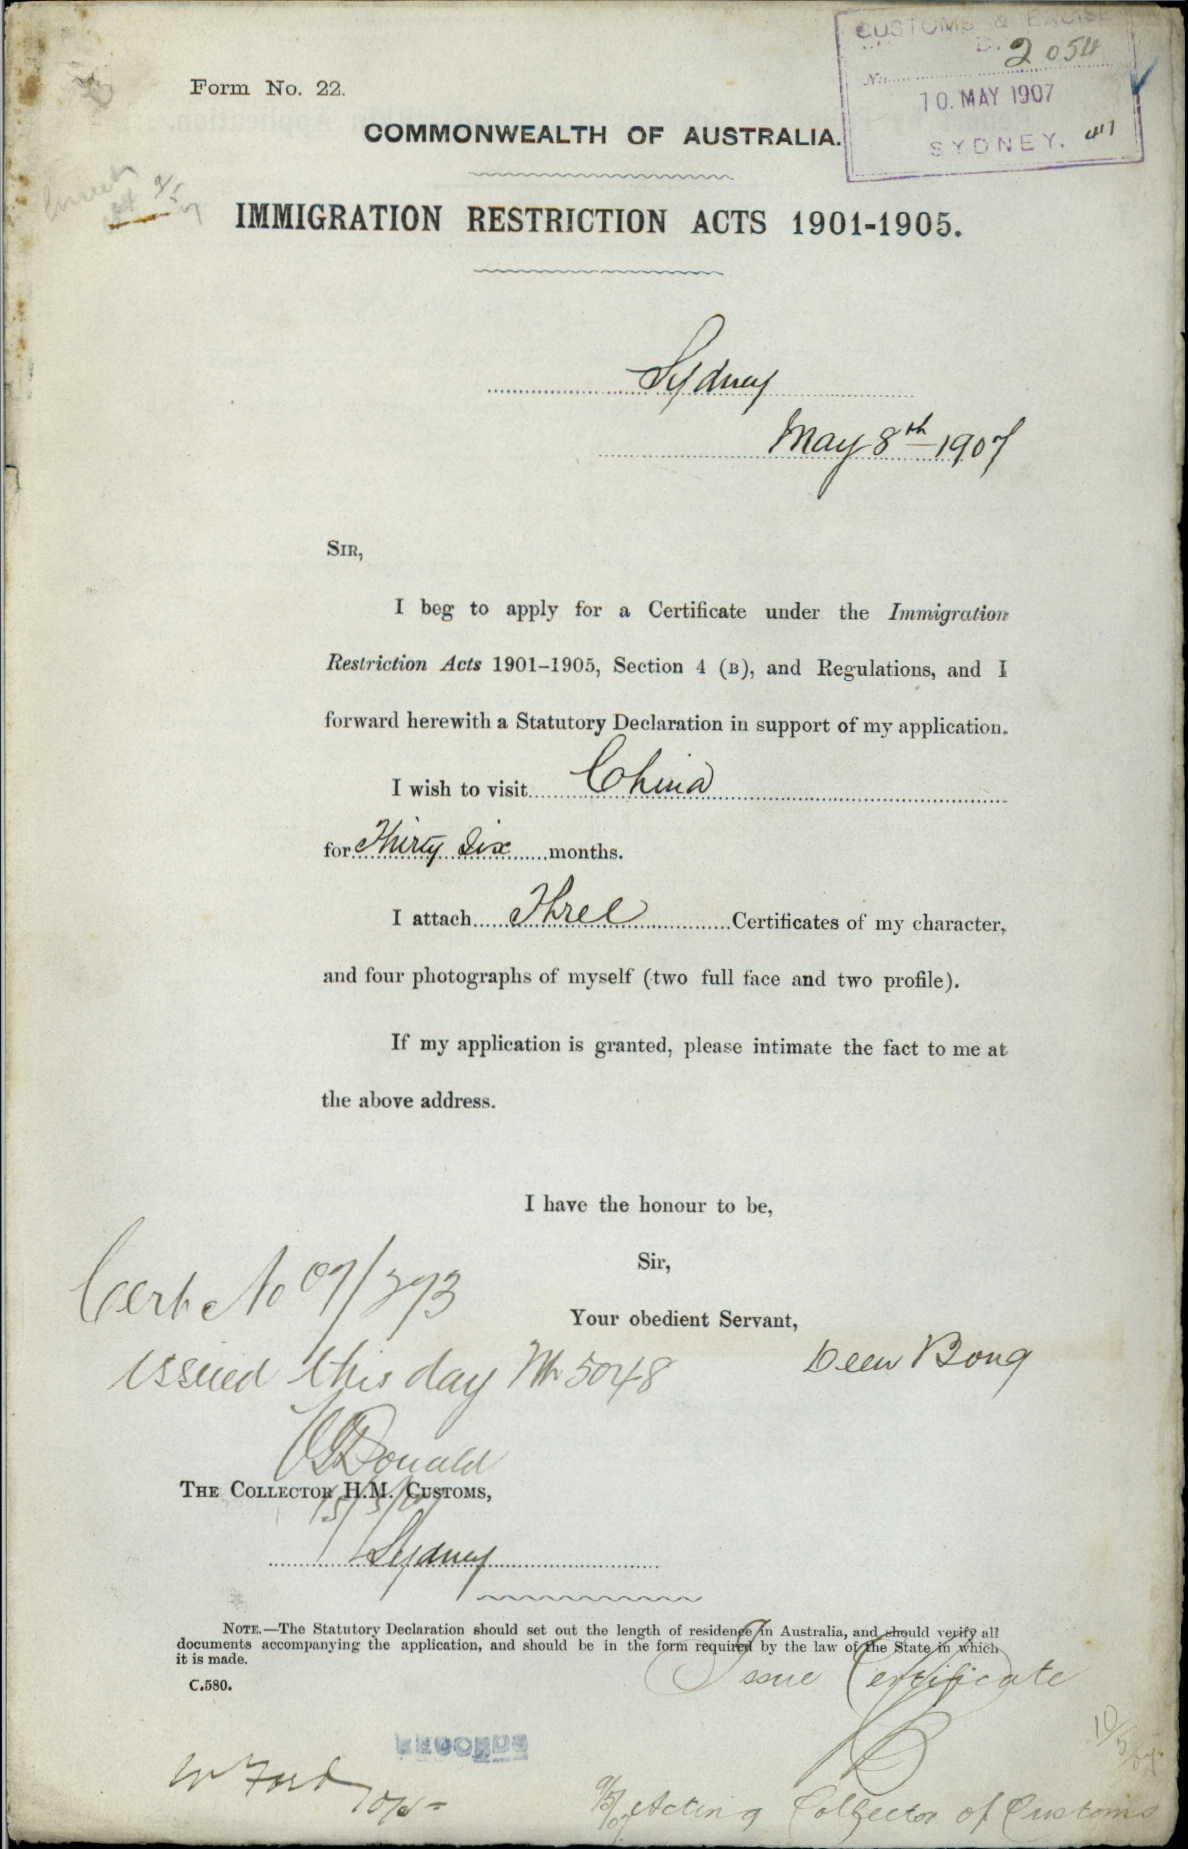 CUSTOMS & EXCISE
2 054
No.
10. MAY 1907
SYDNEY.
Form No. 22.
COMMONWEALTH OF AUSTRALIA.
IMMIGRATION RESTRICTION ACTS 1901-1905.
Sydney
May 8th 1907
SIR,
I beg to apply for a Certificate under the Immigration
Restriction Acts 1901–1905, Section 4 (B), and Regulations, and I
forward herewith a Statutory Declaration in support of my application.
I wish to visit China
for Thirty Six months.
I attach Three Certificates of my character,
and four photographs of myself (two full face and two profile).
If my application is granted, please intimate the fact to me at
the above address.
I have the honour to be,
Sir,
Your obedient Servant,
Deen Bong
Cert No 07/273
issued this day 5048
Donald
15/5/07
THE COLLECTOR H.M. CUSTOMS,
Sydney
NOTE.—The Statutory Declaration should set out the length of residence in Australia, and should verify all
documents accompanying the application, and should be in the form required by the law of the State in which
it is made.
C.580.
Issue Certificate
10/5/07
RECORDS
W Ford
10/5
9/5/07 Acting Collector of Customs